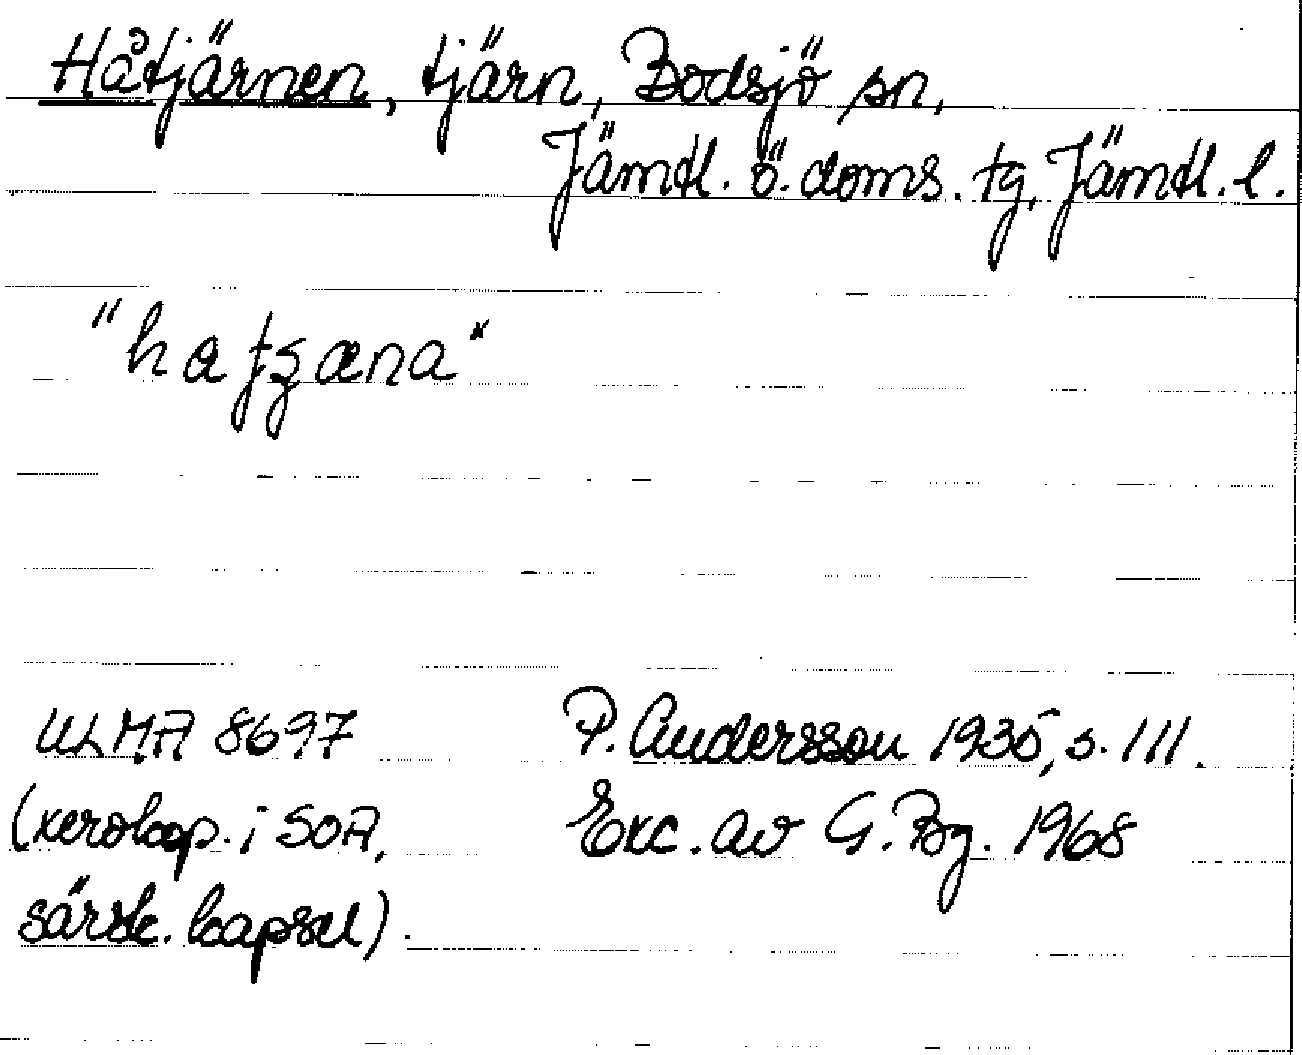 Håtjärnen, tjärn, Bodsjö sn,
Jämtl. ö. doms. tg, Jämtl. l.
"hatʒæna"
ULMA 8697
(xerokop. i SOA,
särsk. kapsel).
P. Andersson 1935, s. 111.
Exc. av G. Bg. 1968